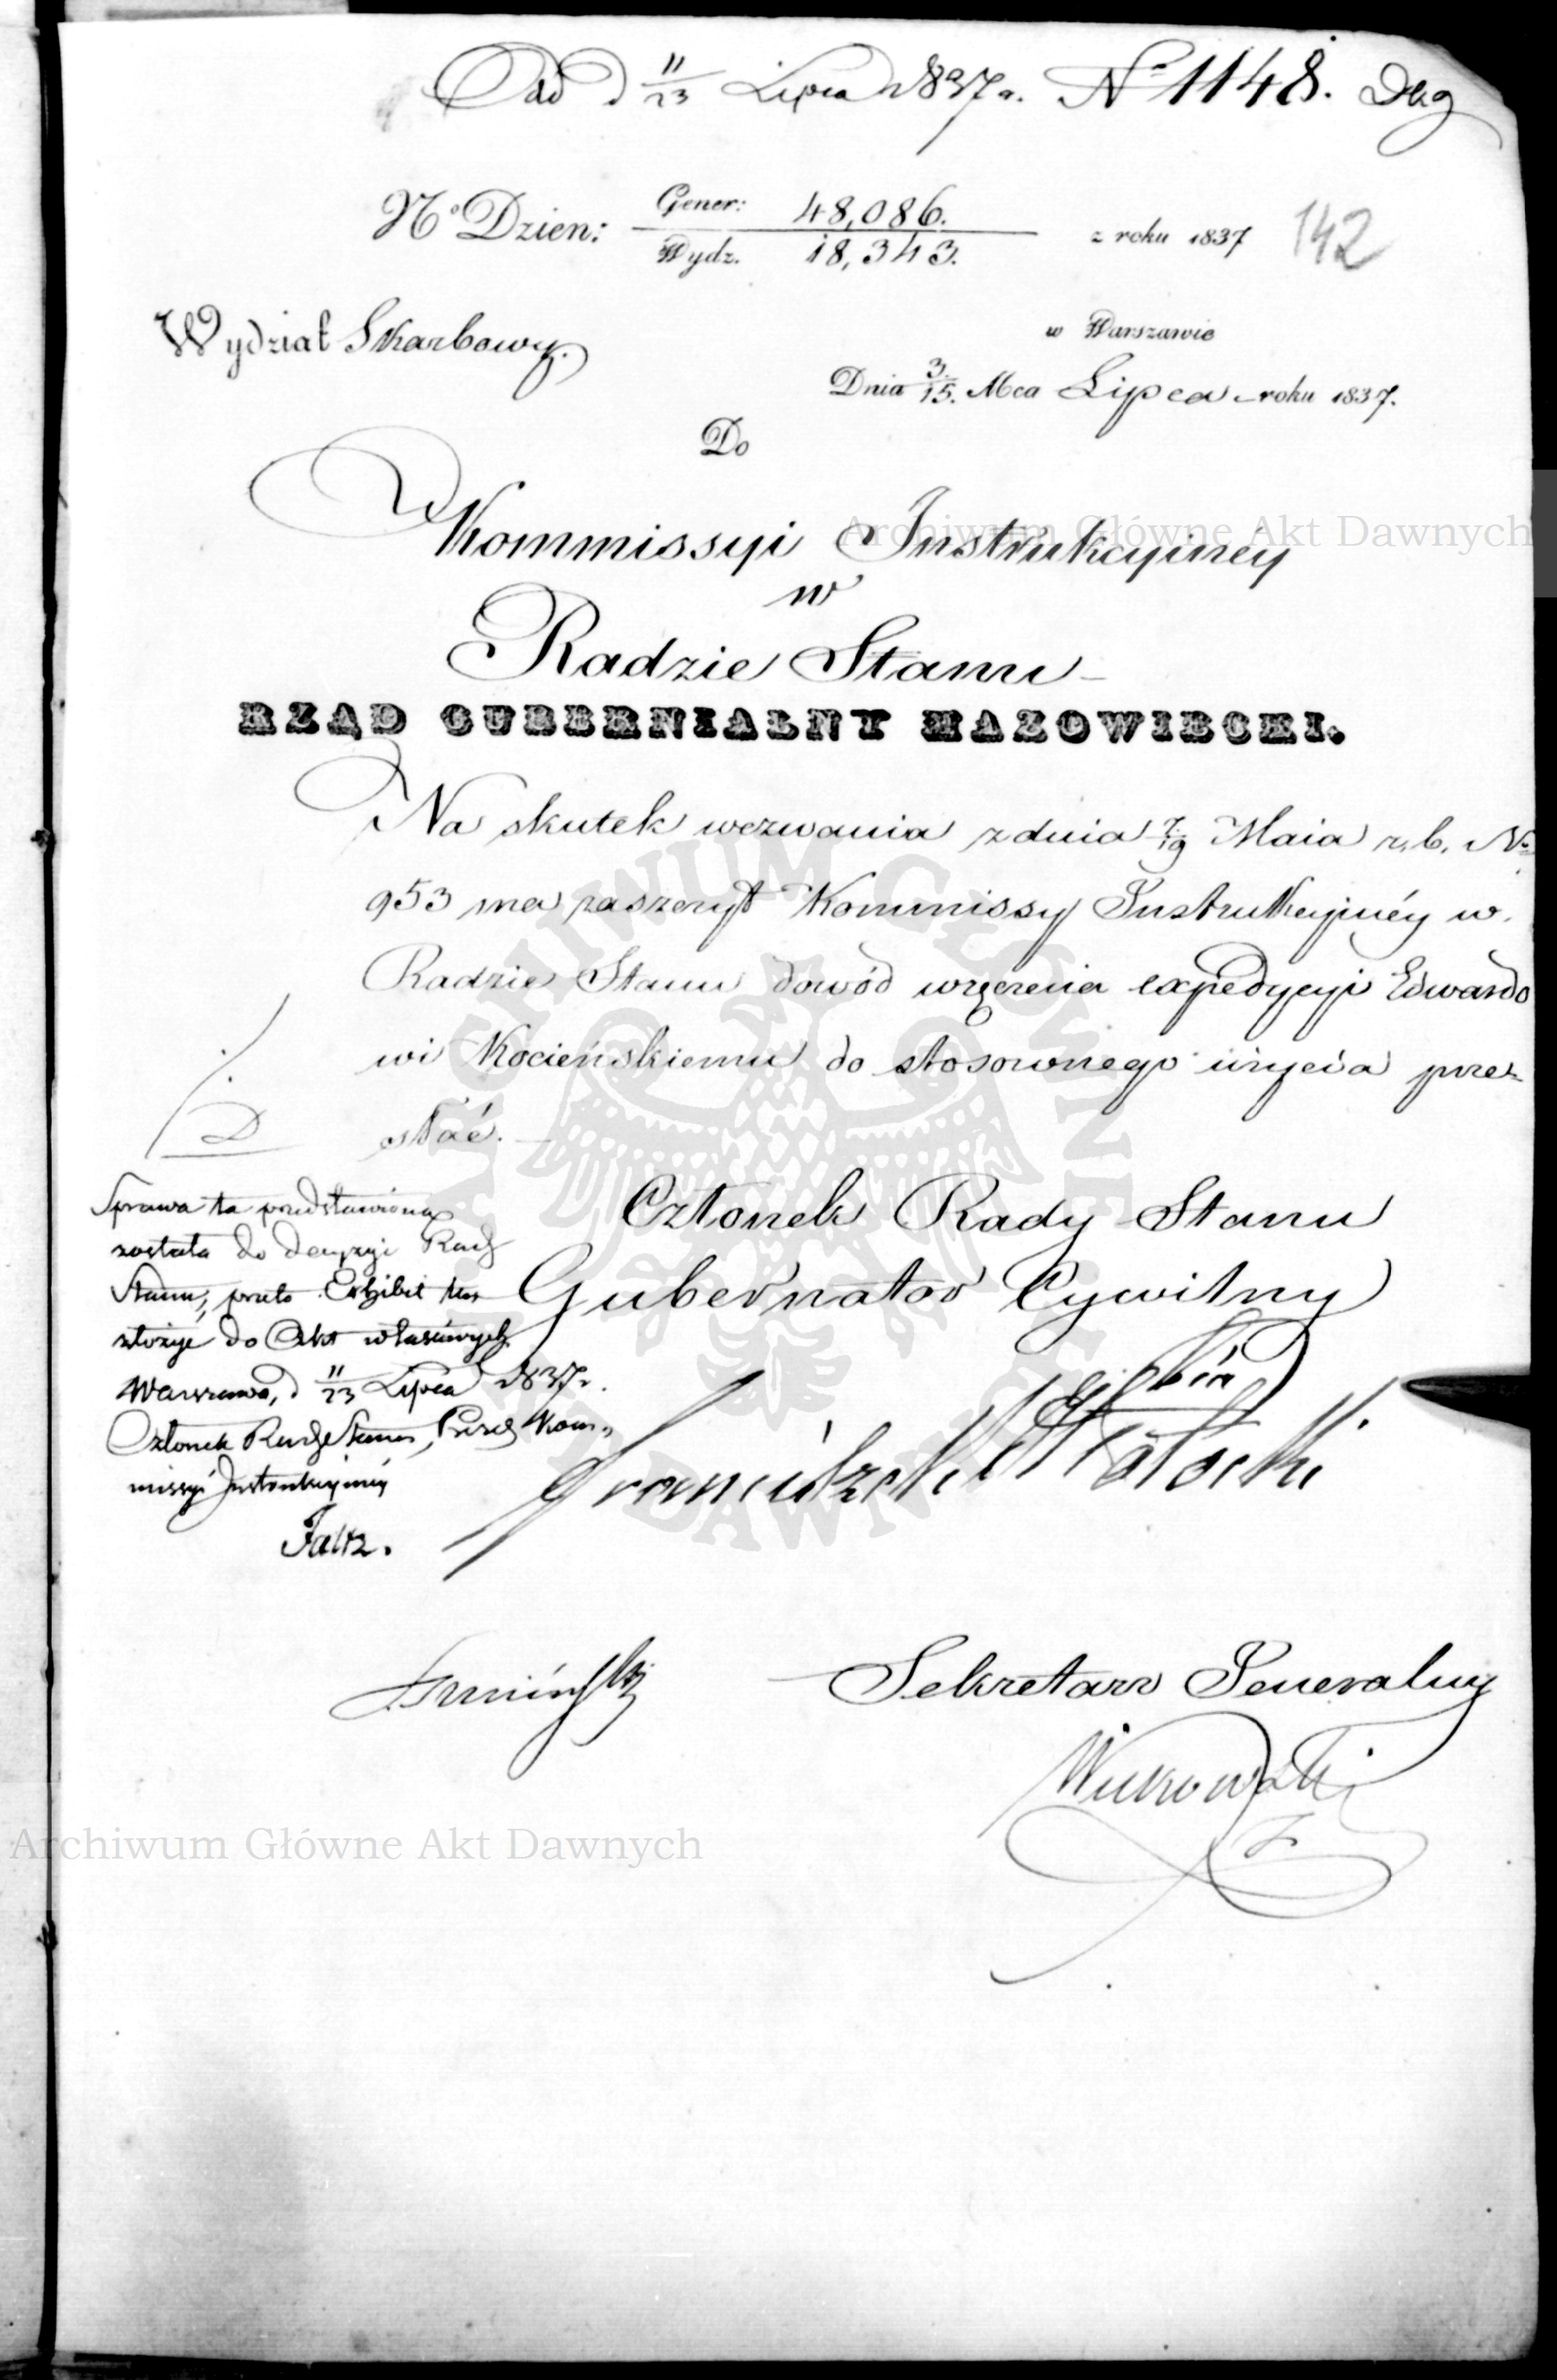 Odd d 11/23 Lipca 1837 r. No 1148.
No Dzien: Gener: 48,086. z roku 1837 142
Wydz. 18,343.
Wydział Skarbowy.
w Warszawie
Dnia 3/15. Mca Lipca roku 1837.
Do
Kommissyi Instrukcyiney
w
Radzie Stanu
RZĄD GUBERNIALNY MAZOWIECKI.
Na skutek wezwania z dnia 7/19 Maia r. b. No
953 ma zaszczyt Kommissy Instrukcyinéy w
Radzie Stanu dowód wręczenia expedycyi Edwardo
wi Kocieńskiemu do stosownego użycia prze-
słać.
Członek Rady Stanu
Gubernator Cywilny
Hrabia
Potocki
Sprawa ta przedstawiona
została do decyzyi Rady
Stanu, przeto Exhibit ten
złożyć do Akt właściwych
Warszawa, d 11/23 Lipca 1837 r.
Członek Rady Stanu, Prezes Kom-
missyi Instrukcyinéy
Faltz.
Sekretarz Generalny
Archiwum Główne Akt Dawnych
Archiwum Główne Akt Dawnych
ARCHIWUM GŁÓWNE AKT DAWNYCH